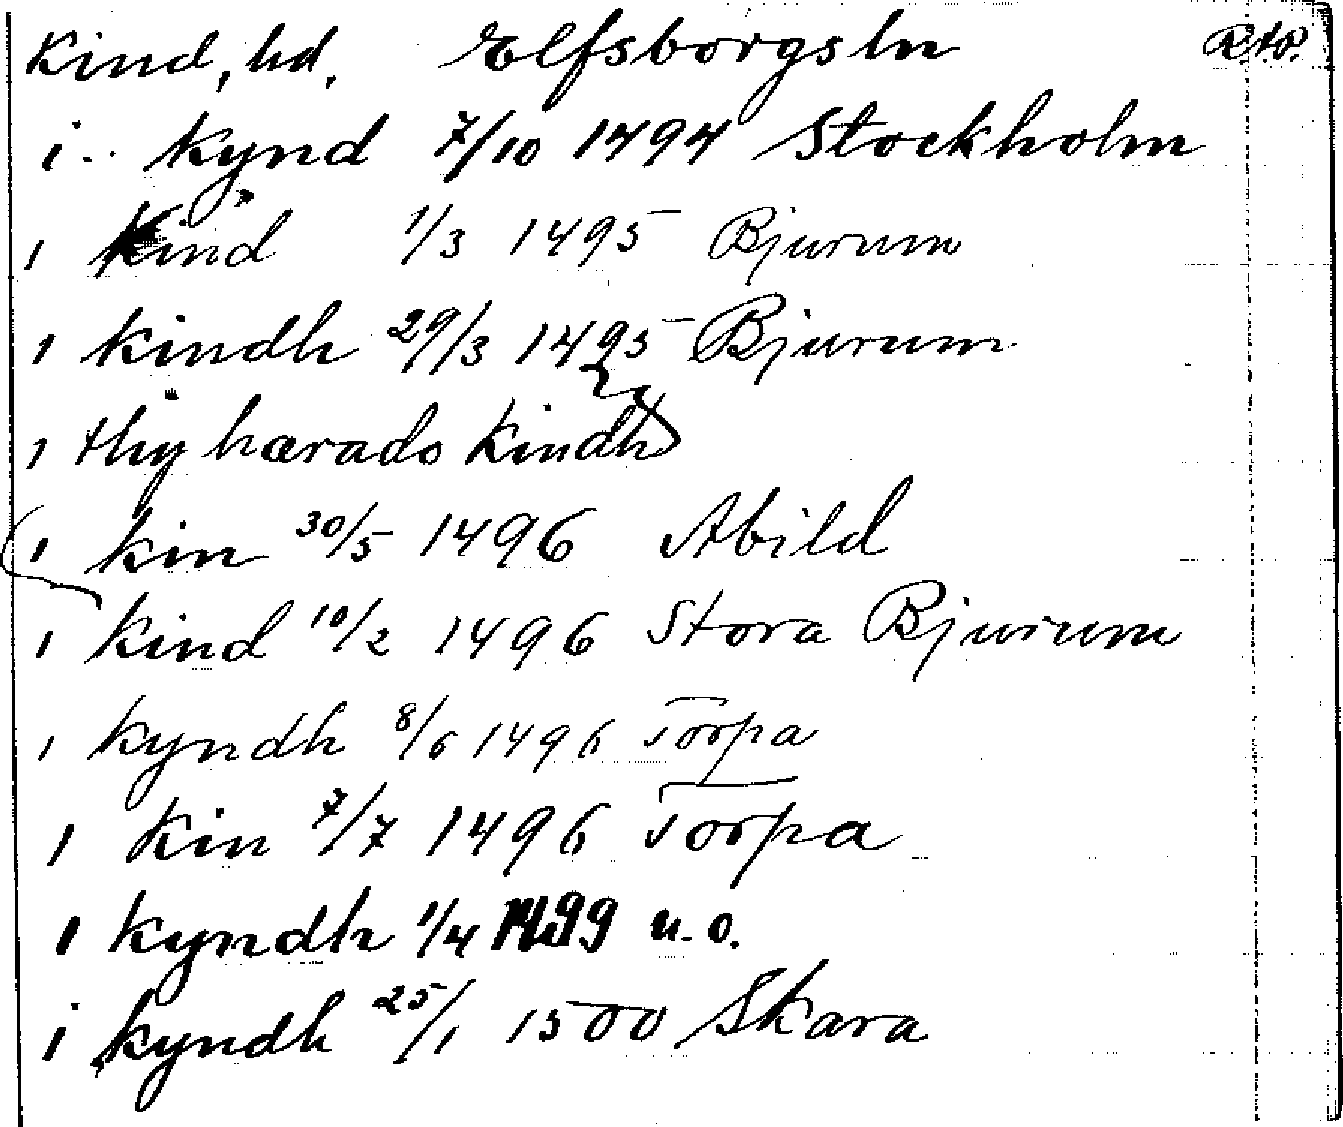 Kind, hd. Elfsborgsln
i kynd 7/10 1494 Stockholm
i Kind 1/3 1495 Bjurum
i kindh 29/3 1495 Bjurum
i thy hærado kindh
i kin 30/5 1496 Abild
i kind 10/2 1496 Stora Bjurum
i kyndh 8/6 1496 Torpa
i kin 7/7 1496 Torpa
i kyndh 1/4 1499 u.o.
i kyndh 25/1 1500 Skara